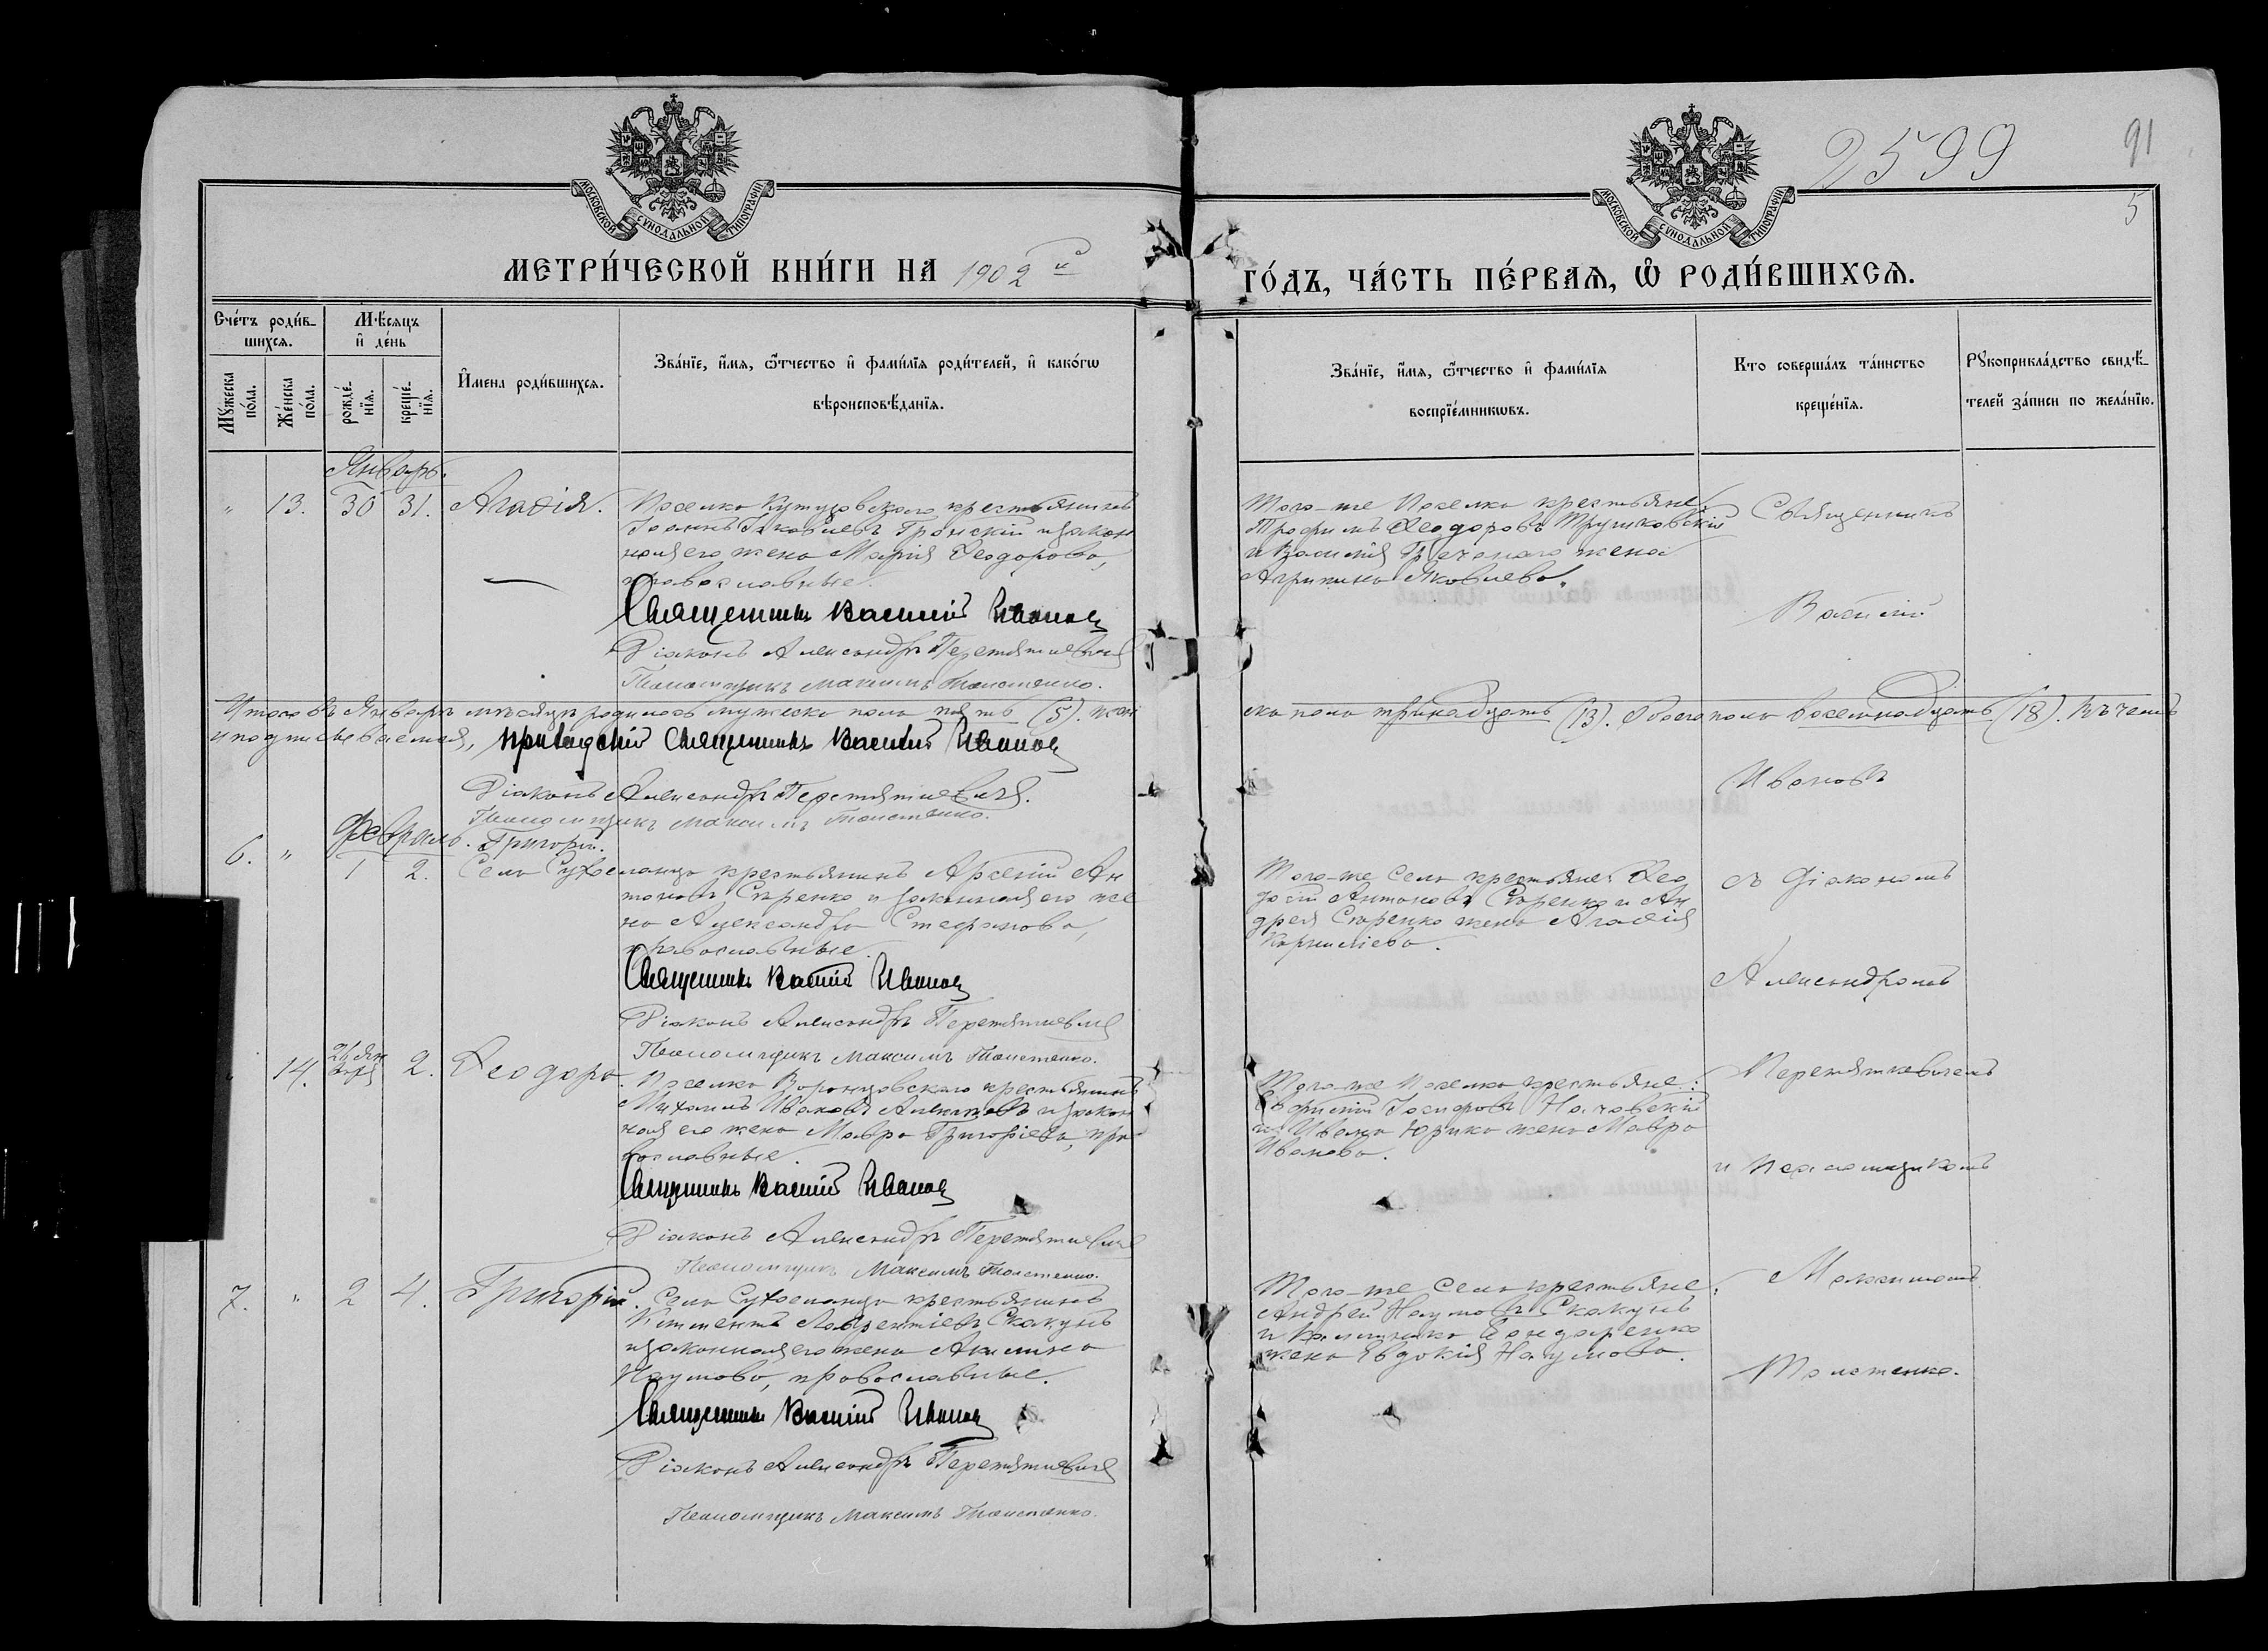 2599
91
5
МОСКОВСКОЙ СУНОДАЛЬНОЙ ТИПОГРАФІИ
МОСКОВСКОЙ СУНОДАЛЬНОЙ ТИПОГРАФІИ
МЕТРИ́ЧЕСКОЙ КНИ́ГИ НА 1902 й
ГО́ДЪ, ЧА́СТЬ ПЕ́РВАѦ, Ѡ҆ РОДИ́ВШИХСѦ.
Сче́тъ роди́в-
шихсѧ.
Мѣ́сѧцъ
и҆ де́нь
Мꙋ́жеска
по́ла.
Же́нска
по́ла.
рожде́-
нїѧ.
креще́-
нїѧ.
И҆мена роди́вшихсѧ.
Зва́нїе, и҆́мѧ, ѻ҆́тчество и҆ фами́лїѧ роди́телей, и҆ како́гѡ
вѣроисповѣ́данїѧ.
Зва́нїе, и҆́мѧ, ѻ҆́тчество и҆ фами́лїѧ
воспрїе́мникѡвъ.
Кто соверша́лъ та́инство
креще́нїѧ.
Рꙋкоприкла́дство свидѣ́-
телей за́писи по жела́нїю.
Январь.
" 13. 30 31. Агафія.
Поселка Кутузовскаго крестьянинъ
Іоаннъ Іаковлевъ Гронскій и закон
ная его жена Марія Ѳеодорова,
православные.
Священникъ Василій Ивановъ
Діаконъ Александръ Перетяткевичъ
Псаломщикъ Максимъ Толстенко.
Того-же Поселка крестьяне:
Трофимъ Ѳеодоровъ Трушковскій
и Василія Гречанаго жена
Агрипина Яковлева.
Священникъ
Василій
Итого въ Январѣ мѣсяцѣ родилось мужеска пола пять (5). жен
ска пола тринадцать (13). Обоего пола восемнадцать (18). Въ чемъ
и подписываемся, приходскій Священникъ Василій Ивановъ
Діаконъ Александръ Перетяткевичъ.
Псаломщикъ Максимъ Толстенко.
Ивановъ
Февраль.
6. " 1 2. Григорій.
Села Сухоеланца крестьянинъ Арсеній Ан
тоновъ Сѣренко и законная его же
на Александра Стефанова,
православные.
Священникъ Василій Ивановъ
Діаконъ Александръ Перетяткевичъ
Псаломщикъ Максимъ Толстенко.
Того-же Села крестьяне: Ѳео
досій Антоновъ Сѣренко и Ан
дрея Сѣренко жена Агафія
Корниліева.
съ Діакономъ
Александромъ
" 14. 26 Ян
варя 2. Ѳеодора.
Поселка Воронцовскаго крестьянинъ
Михаилъ Ивановъ и закон
ная его жена Мавра Григоріева, пра
вославные.
Священникъ Василій Ивановъ
Діаконъ Александръ Перетяткевичъ
Псаломщикъ Максимъ Толстенко.
Того-же Поселка крестьяне:
Іосифовъ
и Ивана Юрика жена Мавра
Иванова.
Перетяткевичемъ
и Псаломщикомъ
7. " 2 4. Григорій.
Села Сухоеланца крестьянинъ
Лаврентіевъ Скакунъ
и законная его жена Акилина
Наумова, православные.
Священникъ Василій Ивановъ
Діаконъ Александръ Перетяткевичъ
Псаломщикъ Максимъ Толстенко.
Того-же Села крестьяне:
Андрей Наумовъ Скакунъ
и Бондаренко
жена Евдокія Наумова.
Максимомъ
Толстенко.